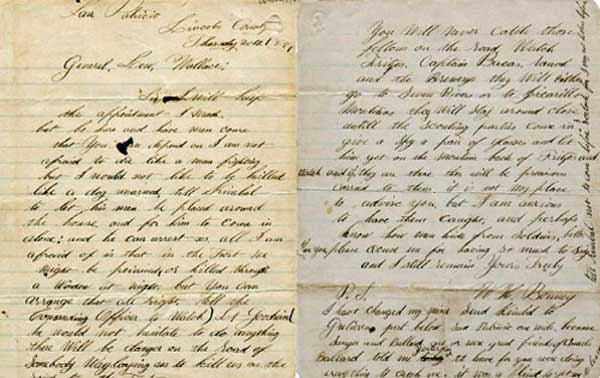 San Patricio
Lincoln County
Thursday 20th 1879
General. Lew. Wallace:
Sir. I will keep
the appointment I made.
but be Sure and have men come
that You can depend on I am not
afraid to die like a man fighting
but I would not like to be killed
like a dog unarmed, tell Kimbal
to let his men be placed around
the house, and for him to come in
alone; and he can arrest us. all I am
afraid of is that in the Fort we
might be poisoned or killed through
a Window at night. but You can
arrange that all right. Tell the
Commanding Officer to Watch) Let Goodwin(
he would not hesitate to do anything
there Will be danger on the road of
Somebody Waylaying us to kill us on the
You Will Never Catch those
fellows on the road Watch
Fritzes, Captain Bacas, ranch
and the Brewery they Will Either
go to Seven Rivers or to Jicarillo
Mountains they Will Stay around close
untill the Scouting parties come in
give a Spy a pair of glasses and let
him get on the Mountain back of Fritzes and
Watch and if they are there ther will be provisions
carried to them. it is not my place
to advise you. but I am anxious
to have them Caught, and perhaps
know how men hide from Soldiers, better
than you. please Excuse me for having so much to Say
and I still remains Yours Truly
W. H. Bonney
P. S.
I have changed my mind Send Kimbal to
Gutieres just below San Patricio one mile, because
Sanger and Ballard are or were great friends of Camels
Ballard told me to leave for you were doing
everything to catch me. it was a blind to get me
tell Kimbal not to come before